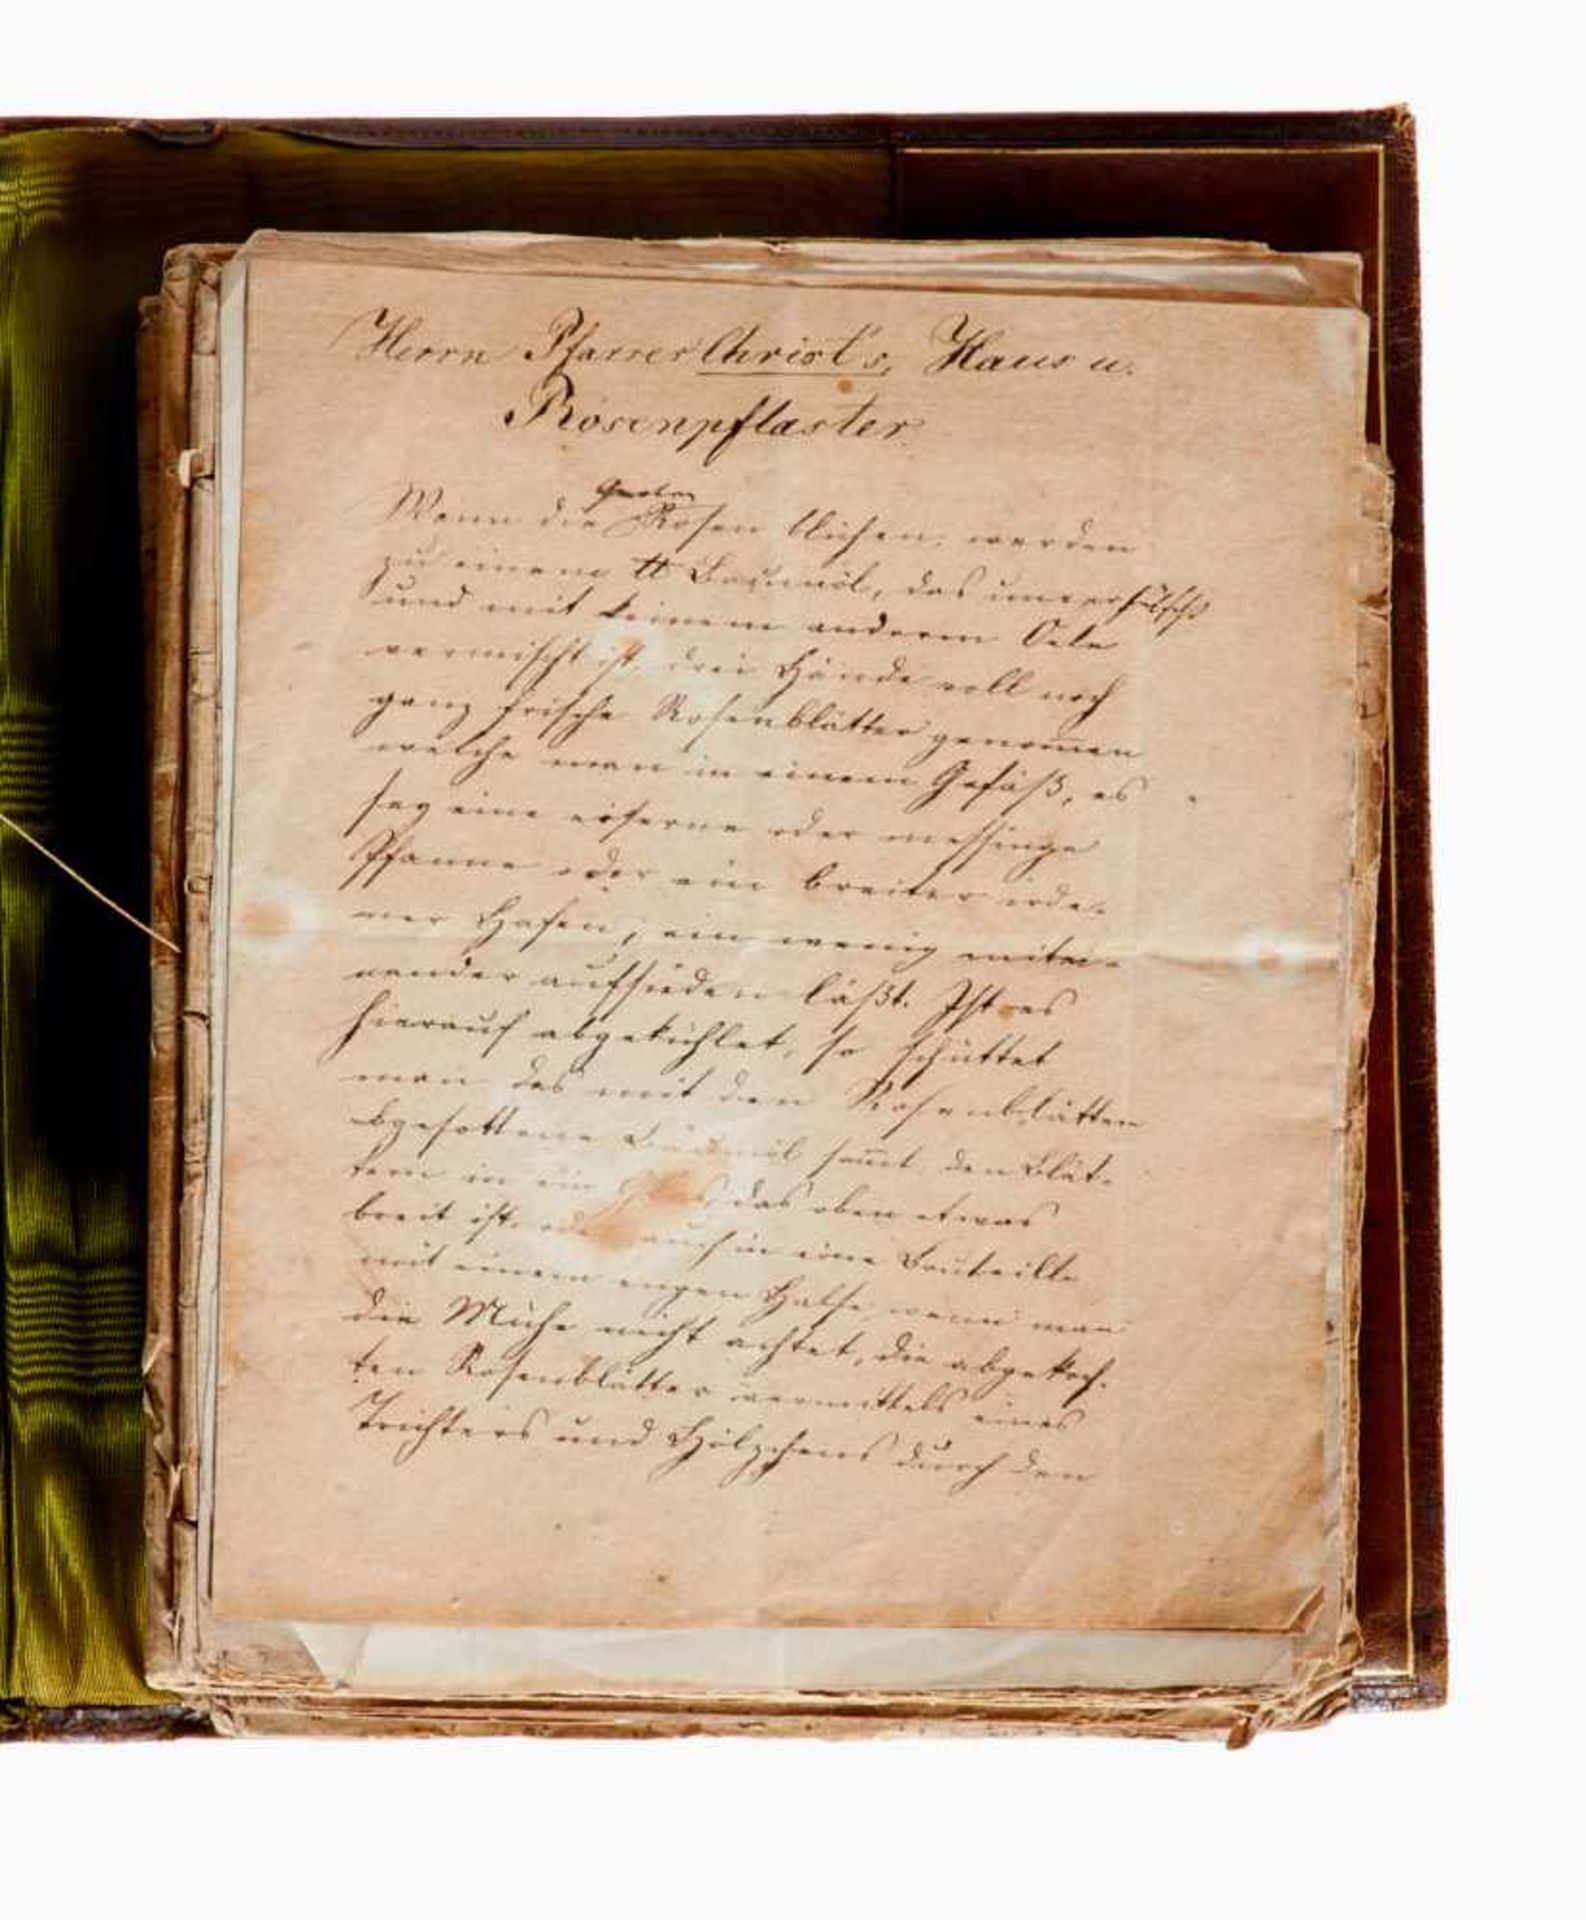 Herrn Pfarrer Christ's, Haus u.
Rosenpflaster
Wenn die Rosen blühen, werden
zu einem ℔ Baumöl, das unverfälscht
und mit keinem anderen Oele
vermischt ist, drei Hände voll noch
ganz frische Rosenblätter genom̅en
welche man in einem Gefäß, es
sey eine eiserne oder messinge
Pfanne oder ein breiter irde-
ner Hafen, ein wenig mitei-
nander aufsieden läßt. Ist es
hierauf abgekühlet, so schüttet
man das mit den Rosenblättern
abgesottene Baumöl sam̅t den Blät-
tern in ein Glas, das oben etwas
breit ist, oder auch in eine Bouteille
mit einem engen Halse, wenn man
die Mühe nicht achtet, die abgekoch-
ten Rosenblätter vermittels eines
Trichters und Hölzchens durch den